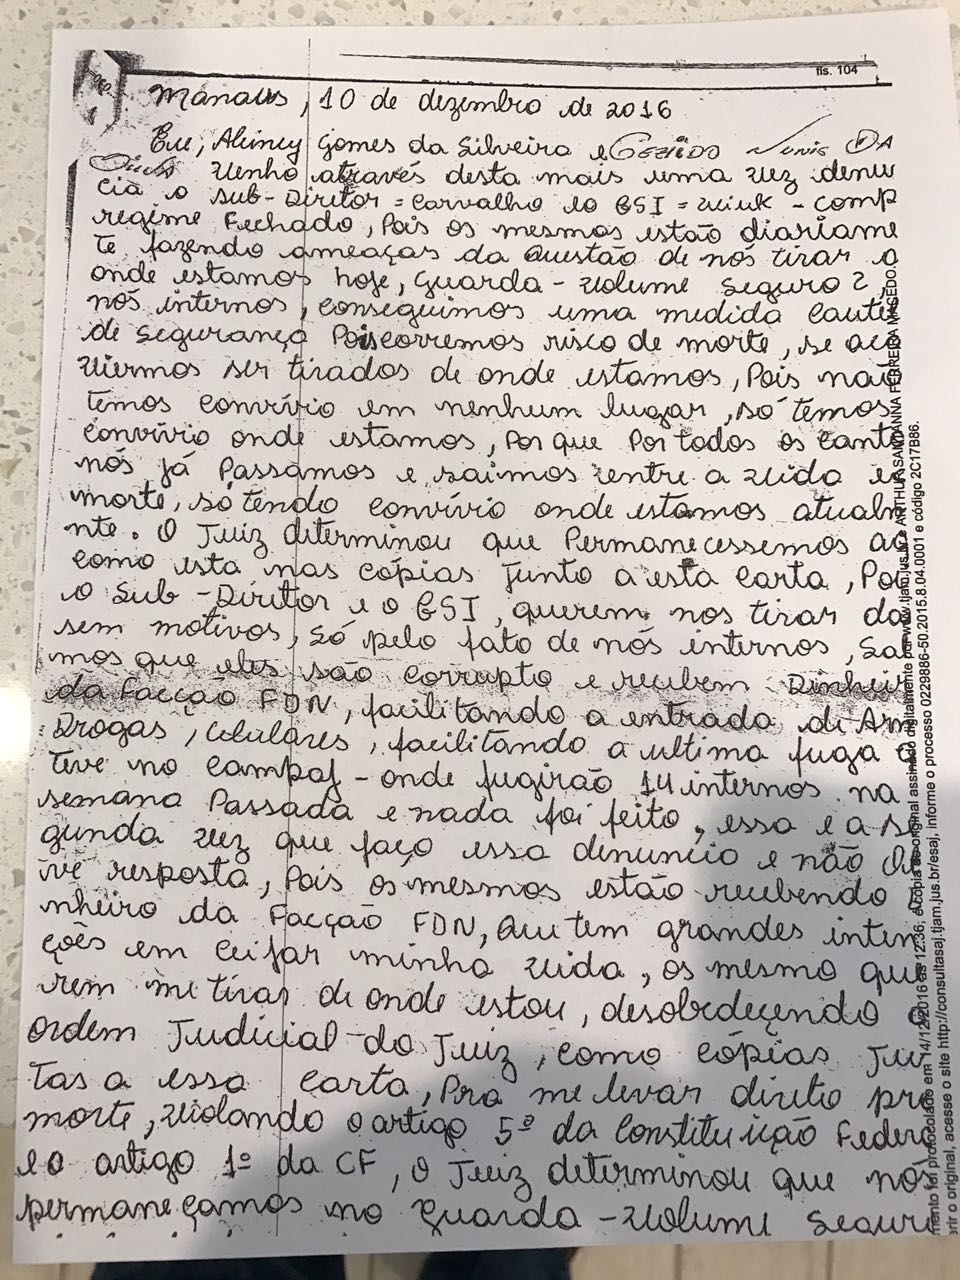 fls. 104
Manaus, 10 de dezembro de 2016
Eu, Alciney Gomes da Silveira e Gezildo Nunis DA
Silva venho através desta mais uma vez denu
cia o Sub-Diretor = Carvalho eo GSI = - comp
regime Fechado, Pois os mesmos estão diariame
te fazendo ameaças da Questão de nós tirar o
onde estamos hoje, Guarda-volume Seguro 2,
nós internos, conseguimos uma medida caute
de segurança Pois corremos risco de morte, se aco
viermos ser tirados de onde estamos, Pois nao
temos convívio em nenhum lugar, só temos
convívio onde estamos, Por que Por todos os canto
nós já Passamos e saimos entre a vida e
morte, só tendo convívio onde estamos atualm
nte. O Juiz determinou que Permanecessemos aq
como esta nas cópias Junto a esta Carta, Poi
o Sub-Diritor e o GSI, querem nos tirar da
sem motivos, só pelo fato de nós internos, sab
mos que eles são corrupto e recebem Dinheir
da Facção FDN, facilitando a entrada de Arm
Drogas, celulares, facilitando a ultima fuga q
teve no Compaj - onde fugirão 14 internos na
semana Passada e nada foi feito, essa e a se
gunda vez que faço essa denuncio e não ob
ive resposta, Pois os mesmos estão recebendo
nheiro da Facção FDN, Qui tem grandes inten
ções em ceifar minha vida, os mesmo que
rem me tirar de onde estou, desobedeçendo a
ordem Judicial do Juiz, como cópias Jun
tas a essa Carta, Pra me levar direto pra
morte, violando o artigo 5º da Constituição Federa
e o artigo 1º da CF, o Juiz determinou que nós
permaneçamos no Guarda-volume seguro
mento foi protocolado em 14/12/2016 às 12:36, é cópia do original assinado digitalmente por www.tjam.jus.br e ARTHUR SANT'ANNA FERREIRA MACEDO.
erir o original, acesse o site http://consultasaj.tjam.jus.br/esaj, informe o processo 0229986-50.2015.8.04.0001 e código 2C17B86.